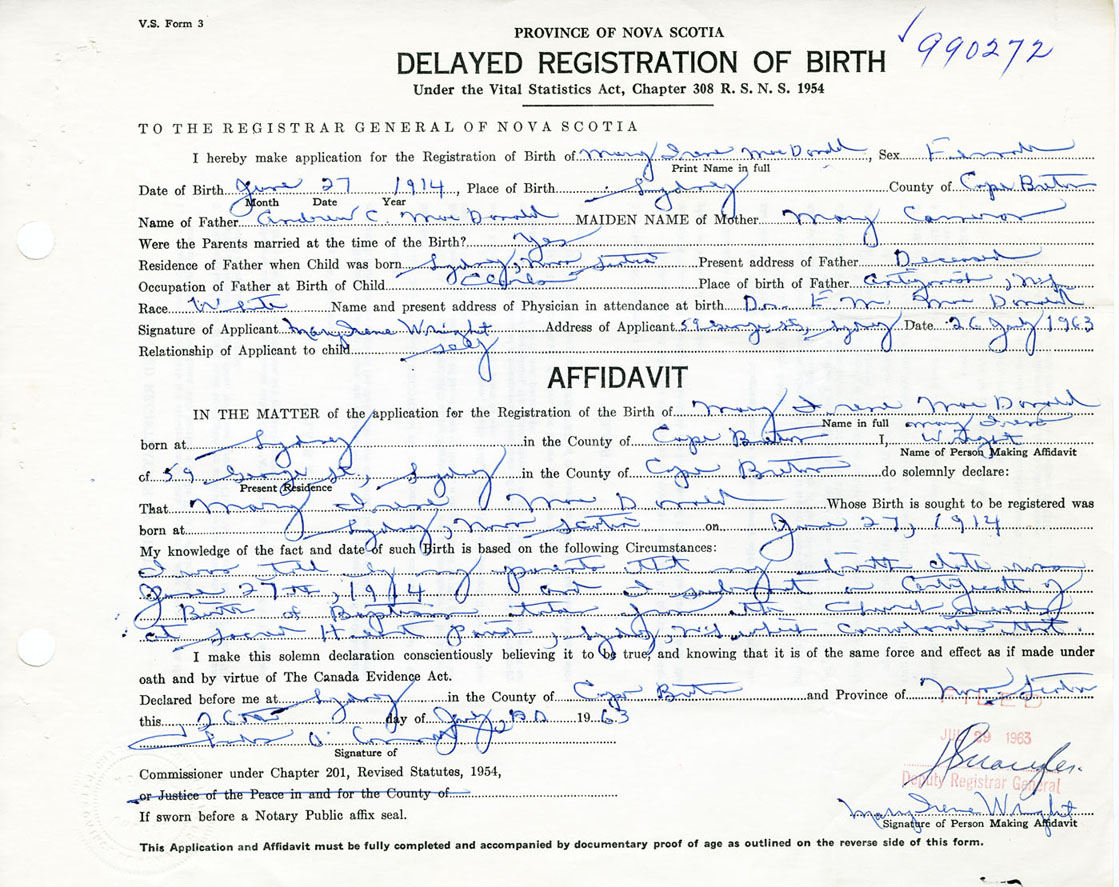 V.S. Form 3
PROVINCE OF NOVA SCOTIA
990272
DELAYED REGISTRATION OF BIRTH
Under the Vital Statistics Act, Chapter 308 R. S. N. S. 1954
TO THE REGISTRAR GENERAL OF NOVA SCOTIA
I hereby make application for the Registration of Birth of Mary Irene MacDonald, Sex Female
Print Name in full
Date of Birth June 27 1914, Place of Birth Sydney County of Cape Breton
Month Date Year
Name of Father Andrew C. MacDonald MAIDEN NAME of Mother Mary Cameron
Were the Parents married at the time of the Birth? Yes
Residence of Father when Child was born Sydney, Nova Scotia Present address of Father Deceased
Occupation of Father at Birth of Child Place of birth of Father Antigonish, N.S.
Race White Name and present address of Physician in attendance at birth Dr. F. M. MacDonald
Signature of Applicant Mary Irene Wright Address of Applicant 59 George St., Sydney Date 26 July 1963
Relationship of Applicant to child self
AFFIDAVIT
IN THE MATTER of the application for the Registration of the Birth of Mary Irene MacDonald
Name in full Mary Irene
born at Sydney in the County of Cape Breton I, Wright
Name of Person Making Affidavit
of 59 George St., Sydney in the County of Cape Breton do solemnly declare:
Present Residence
That Mary Irene MacDonald Whose Birth is sought to be registered was
born at Sydney, Nova Scotia on June 27, 1914
My knowledge of the fact and date of such Birth is based on the following Circumstances:
I was told by my parents that my birth date was
June 27th, 1914 and I submit a Certificate of
Birth of Baptism taken from the Church Records
at Sacred Heart Parish, Sydney, N.S. which corroborates that.
I make this solemn declaration conscientiously believing it to be true, and knowing that it is of the same force and effect as if made under
oath and by virtue of The Canada Evidence Act.
Declared before me at Sydney in the County of Cape Breton and Province of Nova Scotia
FILED
this 26th day of July, A.D. 1963
JUL 29 1963
Signature of
Commissioner under Chapter 201, Revised Statutes, 1954,
Deputy Registrar General
or Justice of the Peace in and for the County of
Mary Irene Wright
If sworn before a Notary Public affix seal.
Signature of Person Making Affidavit
This Application and Affidavit must be fully completed and accompanied by documentary proof of age as outlined on the reverse side of this form.